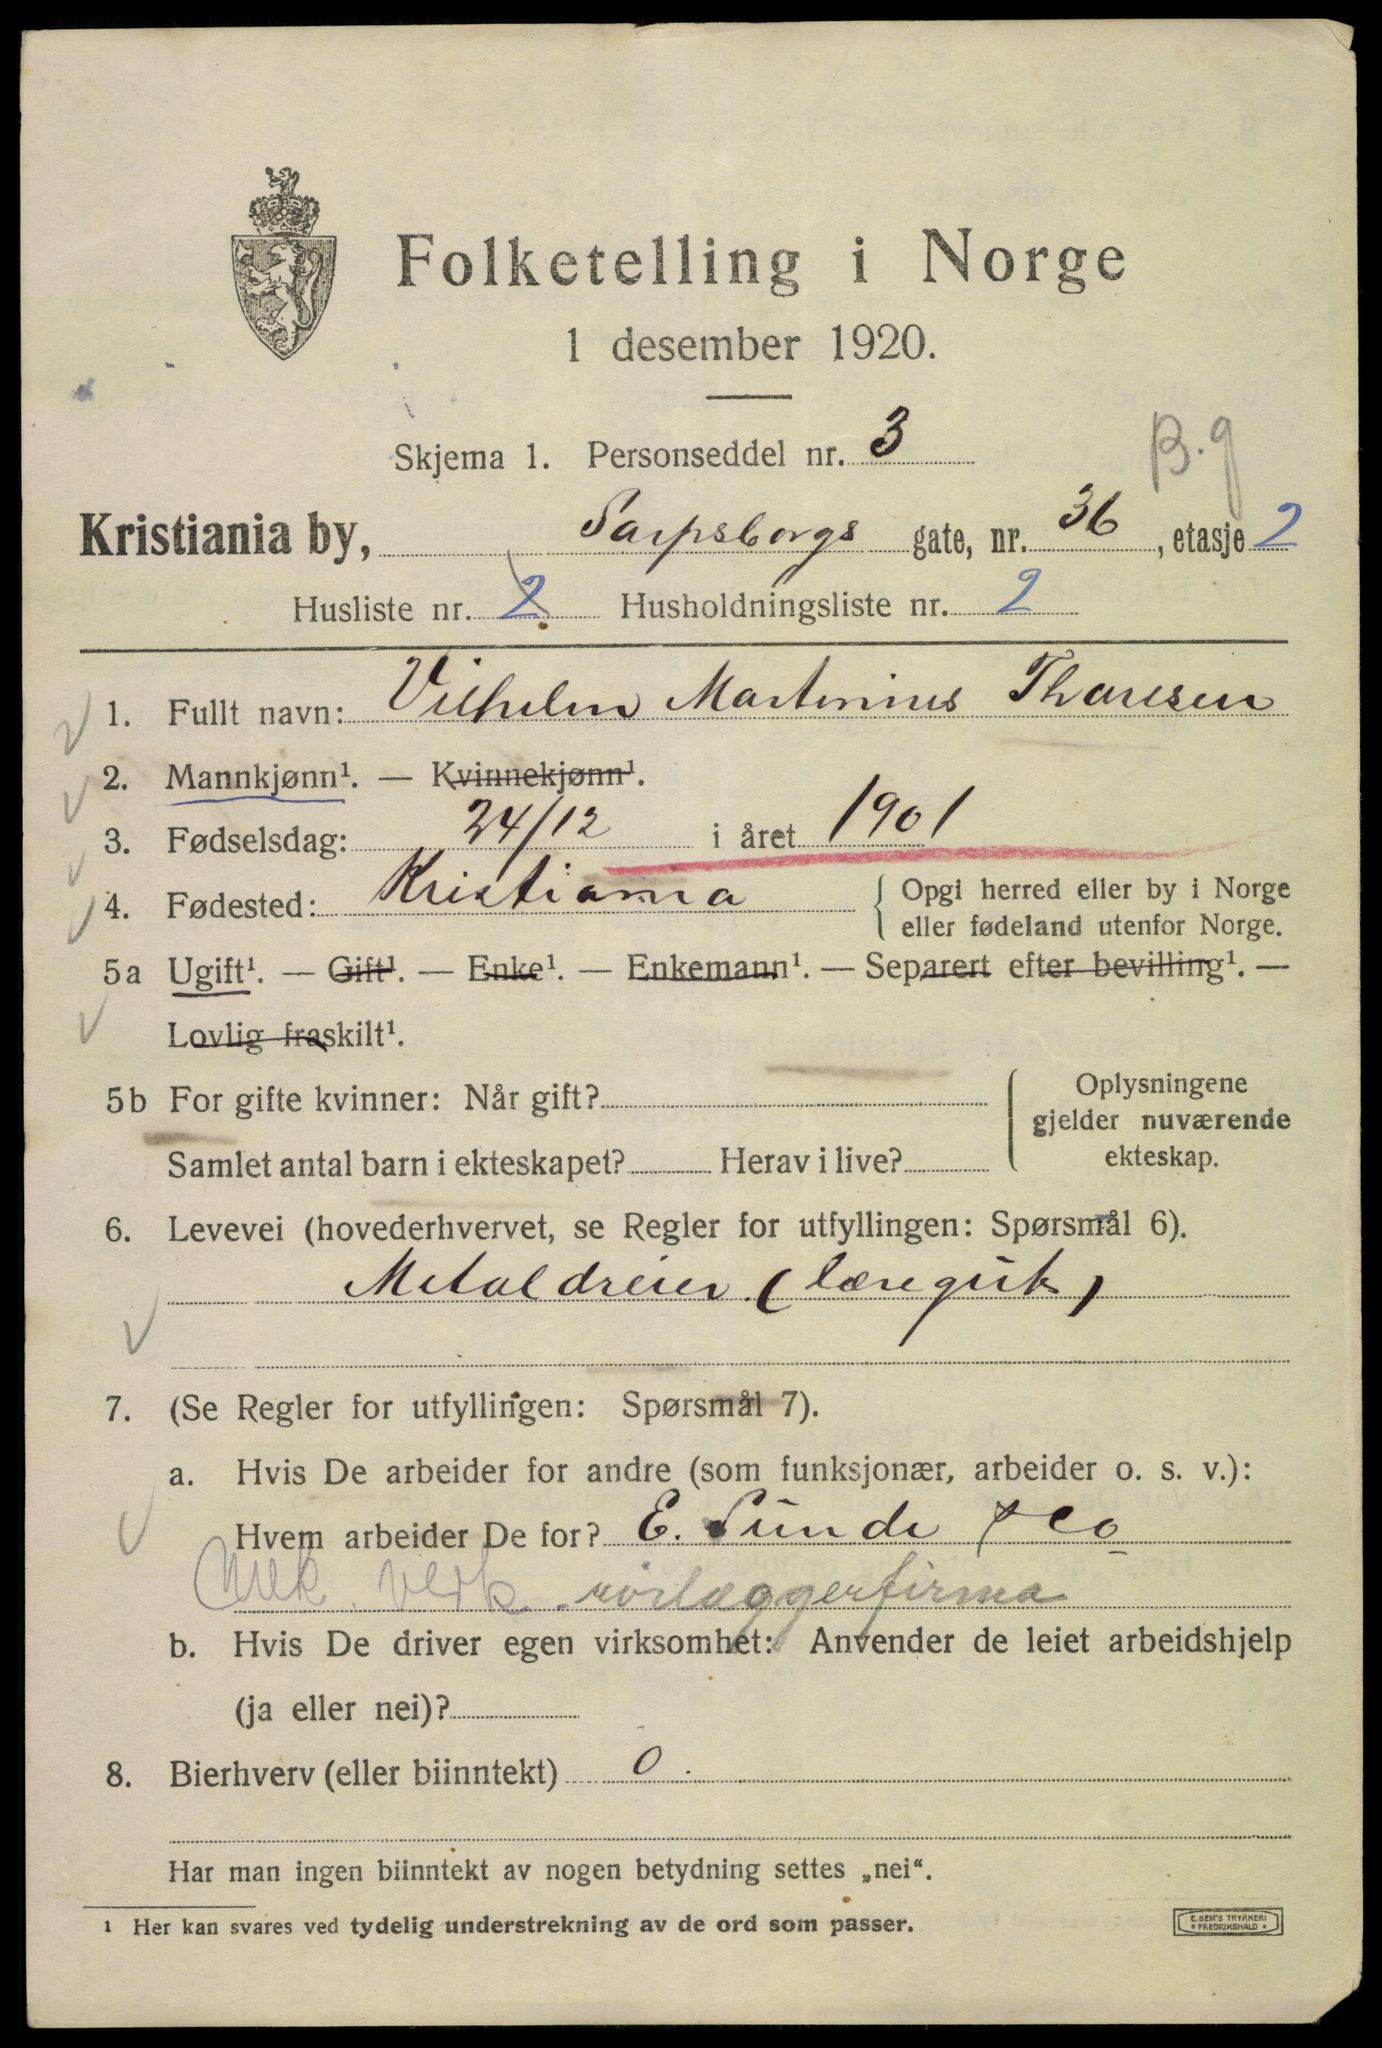 Folketelling i Norge
1 desember 1920.
Skjema 1. Personseddel nr. 3
B.g
Kristiania by, Sarpsborgs gate, nr. 36, etasje 2
Husliste nr. 2 Husholdningsliste nr. 2
1. Fullt navn: Vilhelm Martinius Thoresen
2. Mannkjønn¹. — Kvinnekjønn¹.
3. Fødselsdag: 24/12 i året 1901
4. Fødested: Kristiania { Opgi herred eller by i Norge
eller fødeland utenfor Norge.
5a Ugift¹. — Gift¹. — Enke¹. — Enkemann¹. — Separert efter bevilling¹. —
Lovlig fraskilt¹.
5b For gifte kvinner: Når gift?
Samlet antal barn i ekteskapet? Herav i live?
Oplysningene
gjelder nuværende
ekteskap.
6. Levevei (hovederhvervet, se Regler for utfyllingen: Spørsmål 6).
Metaldreier (læregut)
7. (Se Regler for utfyllingen: Spørsmål 7).
a. Hvis De arbeider for andre (som funksjonær, arbeider o. s. v.):
Hvem arbeider De for? E. Sunde & Co
Mek. verk. rörlæggerfirma
b. Hvis De driver egen virksomhet: Anvender de leiet arbeidshjelp
(ja eller nei)?
8. Bierhverv (eller biinntekt) 0.
Har man ingen biinntekt av nogen betydning settes „nei“.
¹ Her kan svares ved tydelig understrekning av de ord som passer.
E. SEM'S TRYKKERI
FREDRIKSHALD